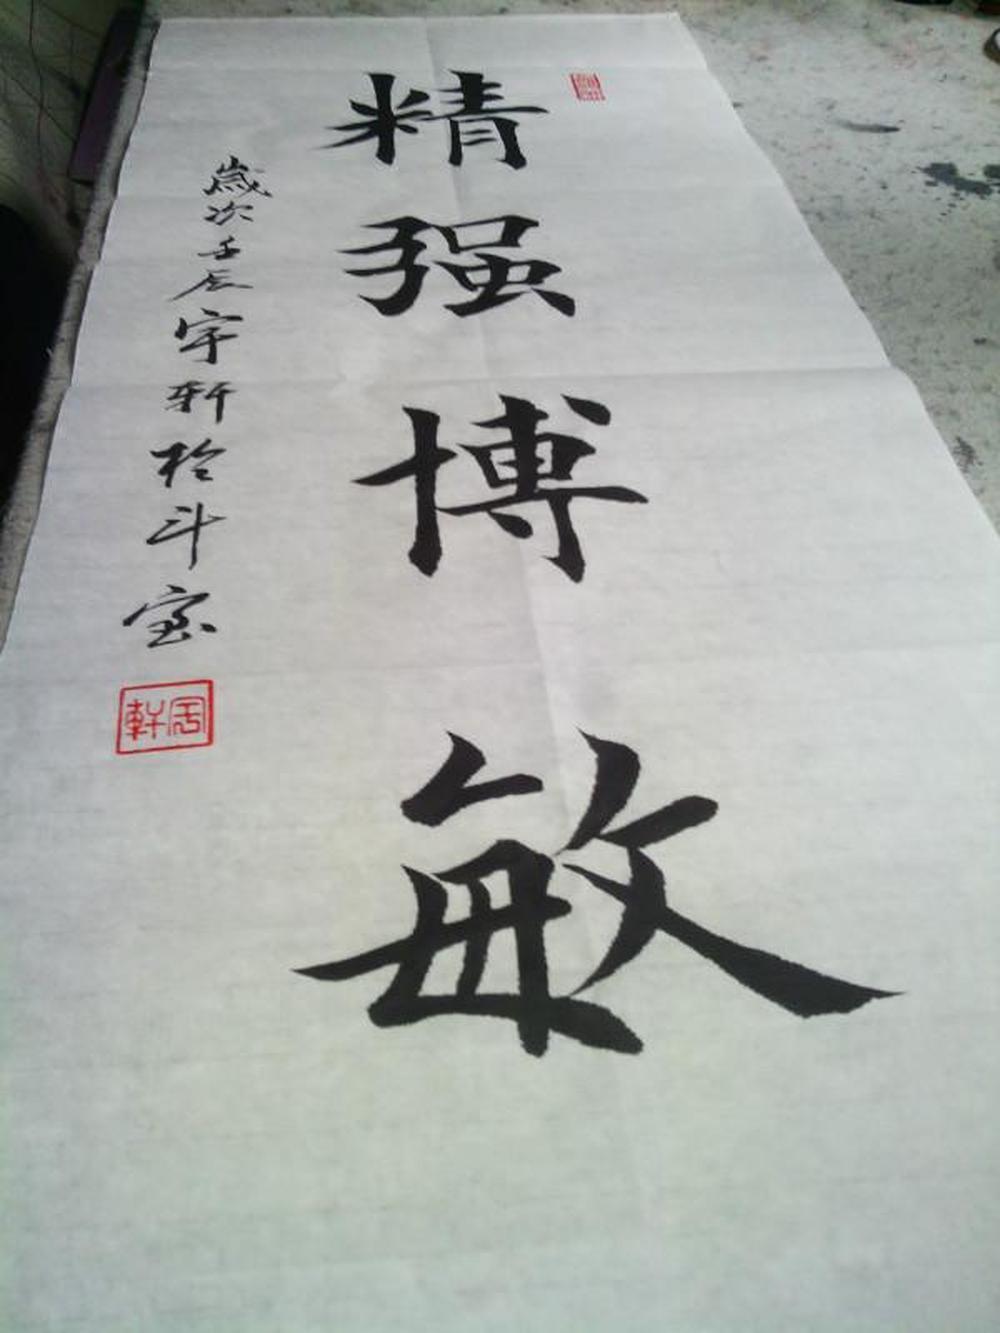 精强博敏
歲次壬辰宇轩於斗室